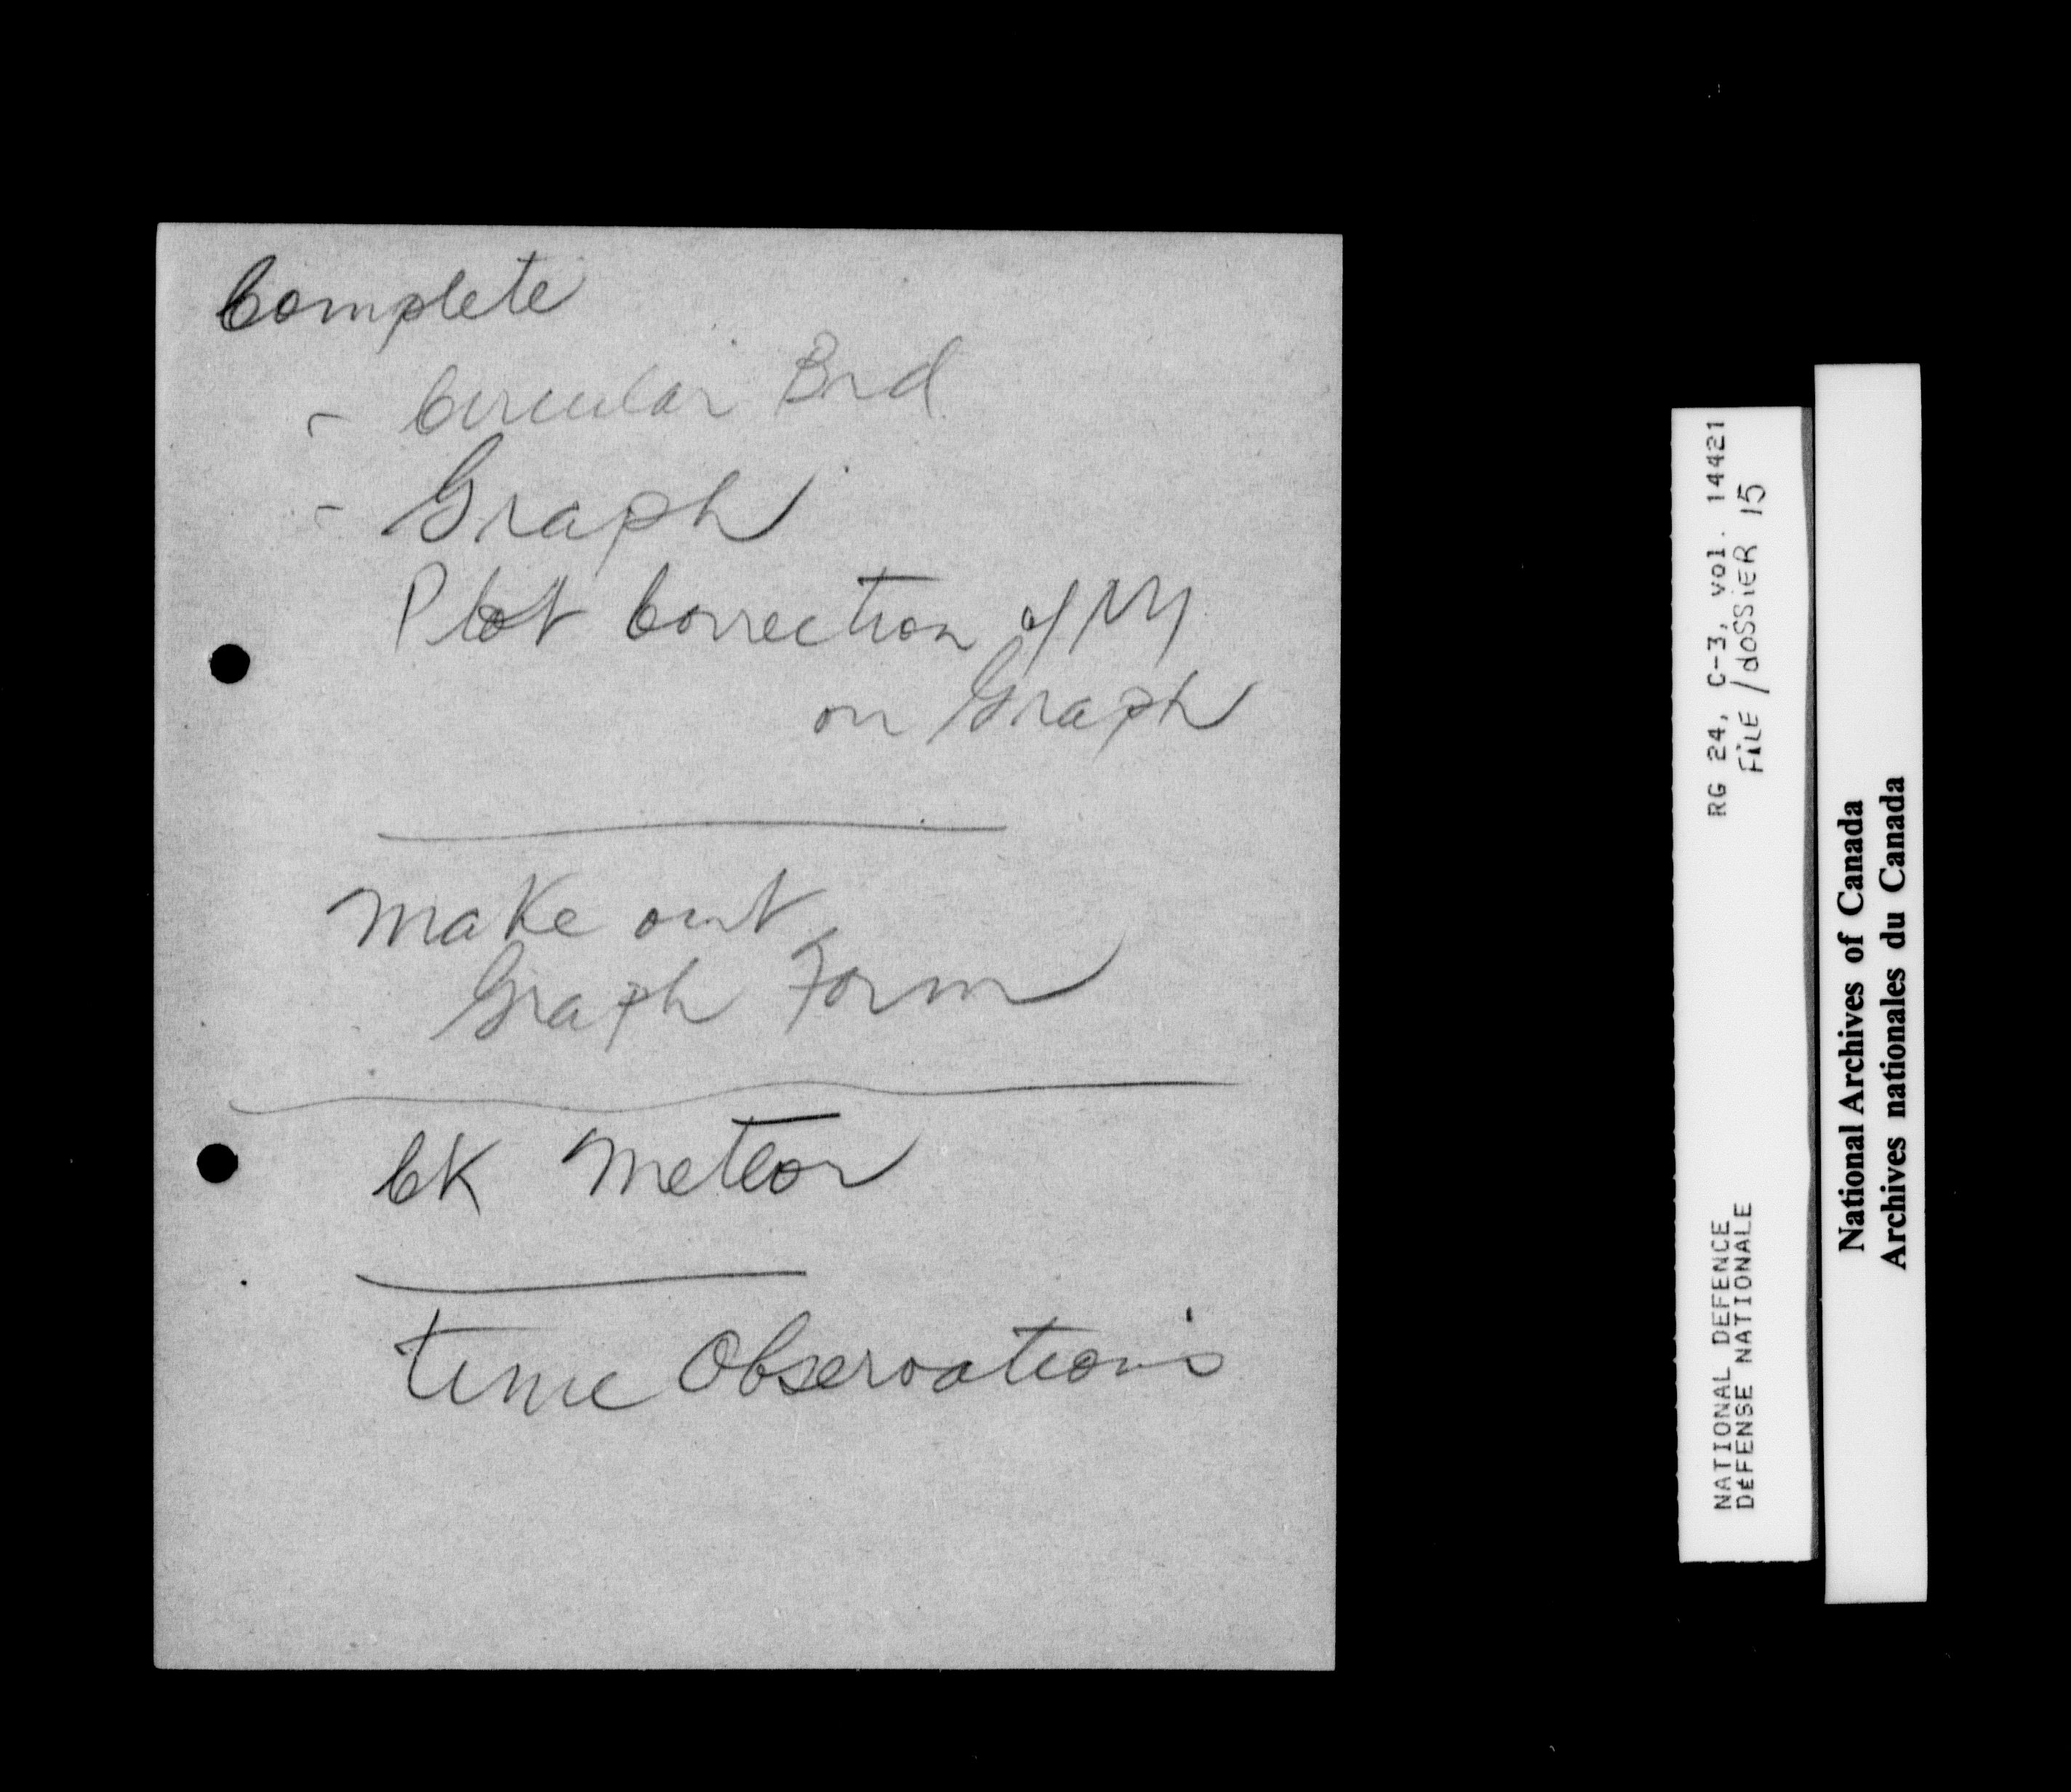 Complete
- Circular Brd
- Graph
Plot Correction of M
on Graph
Make out
Graph Form
CK Meteor
Time Observations
RG 24, C-3, vol. 14421
FILE / dOSSiER 15
NATIONAL DEFENCE
DÉFENSE NATIONALE
National Archives of Canada
Archives nationales du Canada